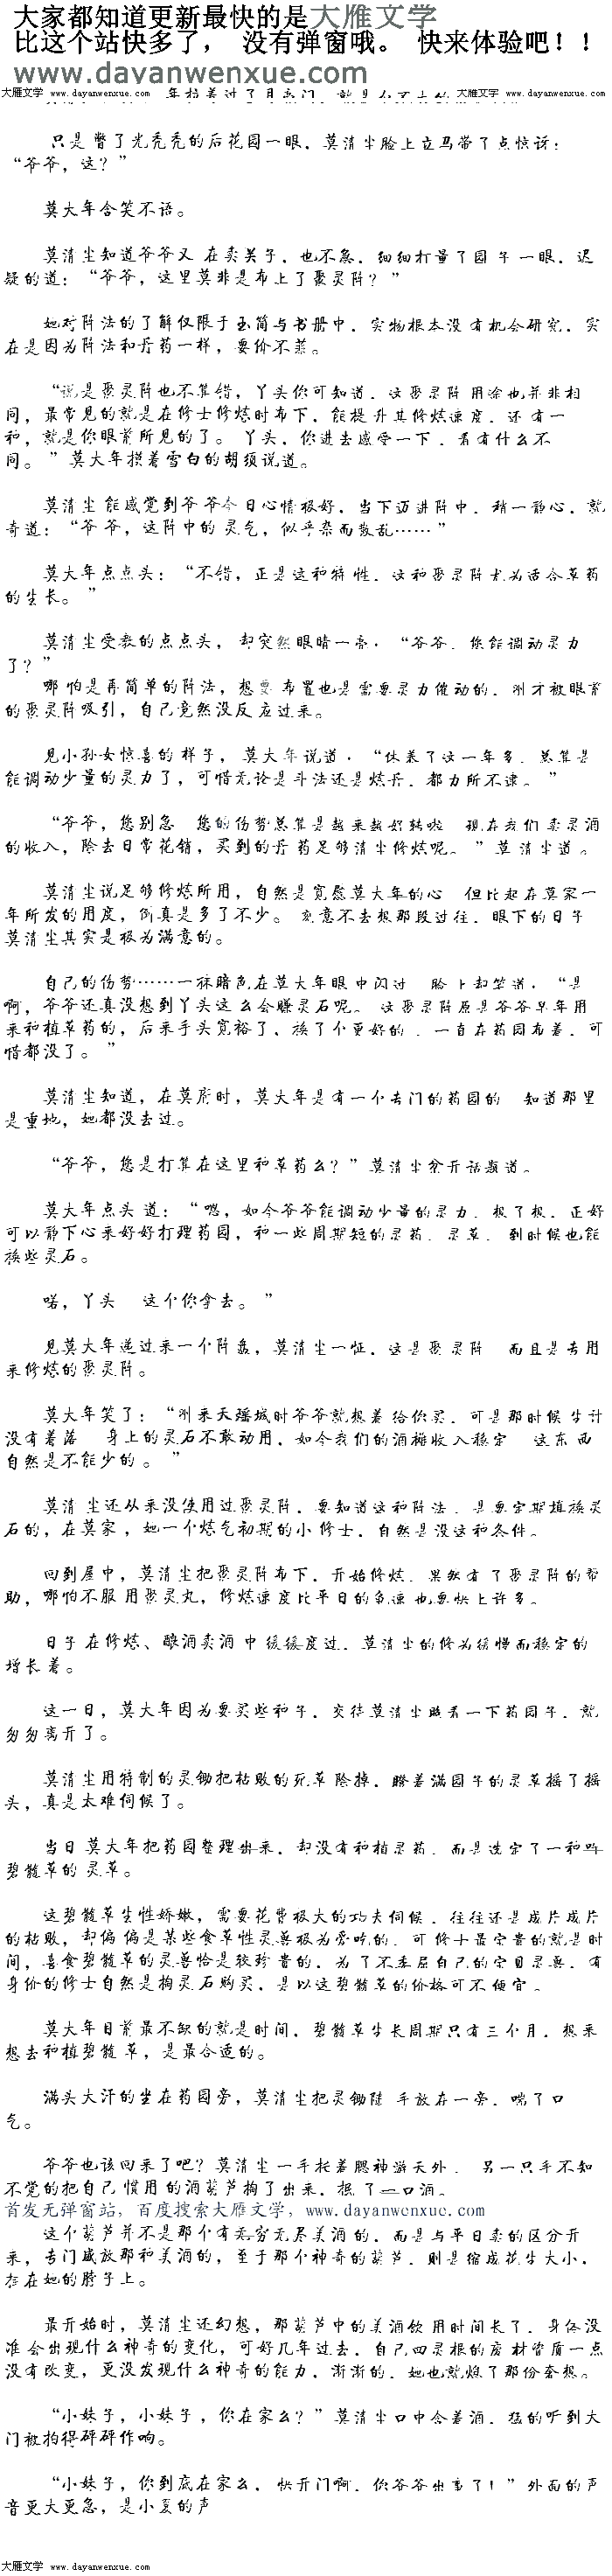 大家都知道更新最快的是大雁文学
比这个站快多了， 没有弹窗哦。 快来体验吧！！
www.dayanwenxue.com
大雁文学 www.dayanwenxue.com 大雁文学 www.dayanwenxue.com
只是瞥了光秃秃的后花园一眼，莫清尘脸上立马带了点惊讶：
“爷爷，这？”
莫大年含笑不语。
莫清尘知道爷爷又在卖关子，也不急，细细打量了园子一眼，迟
疑的道：“爷爷，这里莫非是布上了聚灵阵？”
她对阵法的了解仅限于玉简与书册中，实物根本没有机会研究，实
在是因为阵法和丹药一样，要价不菲。
“说是聚灵阵也不算错，丫头你可知道，这聚灵阵用途也并非相
同，最常见的就是在修士修炼时布下，能提升其修炼速度，还有一
种，就是你眼前所见的了。丫头，你进去感受一下，看有什么不
同。”莫大年摸着雪白的胡须说道。
莫清尘能感觉到爷爷今日心情极好，当下迈进阵中，稍一静心，就
奇道：“爷爷，这阵中的灵气，似乎杂而散乱……”
莫大年点点头：“不错，正是这种特性，这种聚灵阵尤为适合草药
的生长。”
莫清尘受教的点点头，却突然眼睛一亮，“爷爷，您能调动灵力
了？”
哪怕是再简单的阵法，想要布置也是需要灵力催动的，刚才被眼前
的聚灵阵吸引，自己竟然没反应过来。
见小孙女惊喜的样子，莫大年说道，“休养了这一年多，总算是
能调动少量的灵力了，可惜无论是斗法还是炼丹，都力所不逮。”
“爷爷，您别急 您的伤势总算是越来越好转啦 现在我们卖灵酒
的收入，除去日常花销，买到的丹药足够清尘修炼呢。”莫清尘道。
莫清尘说足够修炼所用，自然是宽慰莫大年的心 但比起在莫家一
年所发的用度，倒真是多了不少。刻意不去想那段过往，眼下的日子
莫清尘其实是极为满意的。
自己的伤势……一抹暗色在莫大年眼中闪过 脸上却笑道，“是
啊，爷爷还真没想到丫头这么会赚灵石呢。这聚灵阵原是爷爷早年用
来种植草药的，后来手头宽裕了，换了个更好的，一直在药园布着，可
惜都没了。”
莫清尘知道，在莫府时，莫大年是有一个专门的药园的 知道那里
是重地，她都没去过。
“爷爷，您是打算在这里种草药么？”莫清尘岔开话题道。
莫大年点头道：“嗯，如今爷爷能调动少量的灵力，极了极，正好
可以静下心来好好打理药园，种一些周期短的灵药、灵草，到时候也能
换些灵石。
喏，丫头 这个你拿去。”
见莫大年递过来一个阵盘，莫清尘一怔，这是聚灵阵 而且是专用
来修炼的聚灵阵。
莫大年笑了：“刚来天瑶城时爷爷就想着给你买，可是那时候生计
没有着落 身上的灵石不敢动用，如今我们的酒摊收入稳定 这东西
自然是不能少的。”
莫清尘还从来没使用过聚灵阵，要知道这种阵法，是要定期植换灵
石的，在莫家，她一个炼气初期的小修士，自然是没这种条件。
回到屋中，莫清尘把聚灵阵布下，开始修炼，果然有了聚灵阵的帮
助，哪怕不服用聚灵丸，修炼速度比平日的龟速也要快上许多。
日子在修炼、酿酒卖酒中缓缓度过，莫清尘的修为缓慢而稳定的
增长着。
这一日，莫大年因为要买些种子，交待莫清尘照看一下药园子，就
匆匆离开了。
莫清尘用特制的灵锄把枯败的死草除掉，瞧着满园子的灵草摇了摇
头，真是太难伺候了。
当日莫大年把药园整理出来，却没有种植灵药，而是选定了一种叫
碧髓草的灵草。
这碧髓草生性娇嫩，需要花费极大的功夫伺候，往往还是成片成片
的枯败，却偏偏是某些食草性灵兽极为喜吃的，可修士最宝贵的就是时
间，喜食碧髓草的灵兽恰是较珍贵的，为了不委屈自己的宝贝灵兽，有
身价的修士自然是掏灵石购买，是以这碧髓草的价格可不便宜。
莫大年目前最不缺的就是时间，碧髓草生长周期只有三个月，想来
想去种植碧髓草，是最合适的。
满头大汗的坐在药园旁，莫清尘把灵锄随手放在一旁，喘了口
气。
爷爷也该回来了吧？莫清尘一手托着腮神游天外，另一只手不知
不觉的把自己惯用的酒葫芦掏了出来，抿了一口酒。
首发无弹窗站，百度搜索大雁文学，www.dayanwenxue.com
这个葫芦并不是那个有无穷无尽美酒的，而是与平日卖的区分开
来，专门盛放那种美酒的，至于那个神奇的葫芦，则是缩成花生大小，
挂在她的脖子上。
最开始时，莫清尘还幻想，那葫芦中的美酒饮用时间长了，身体没
准会出现什么神奇的变化，可好几年过去，自己四灵根的废材资质一点
没有改变，更没发现什么神奇的能力，渐渐的，她也就熄了那份奢想。
“小妹子，小妹子，你在家么？”莫清尘口中含着酒，猛的听到大
门被拍得砰砰作响。
“小妹子，你到底在家么，快开门啊，你爷爷出事了！”外面的声
音更大更急，是小夏的声
大雁文学 www.dayanwenxue.com 大雁文学 www.dayanwenxue.com